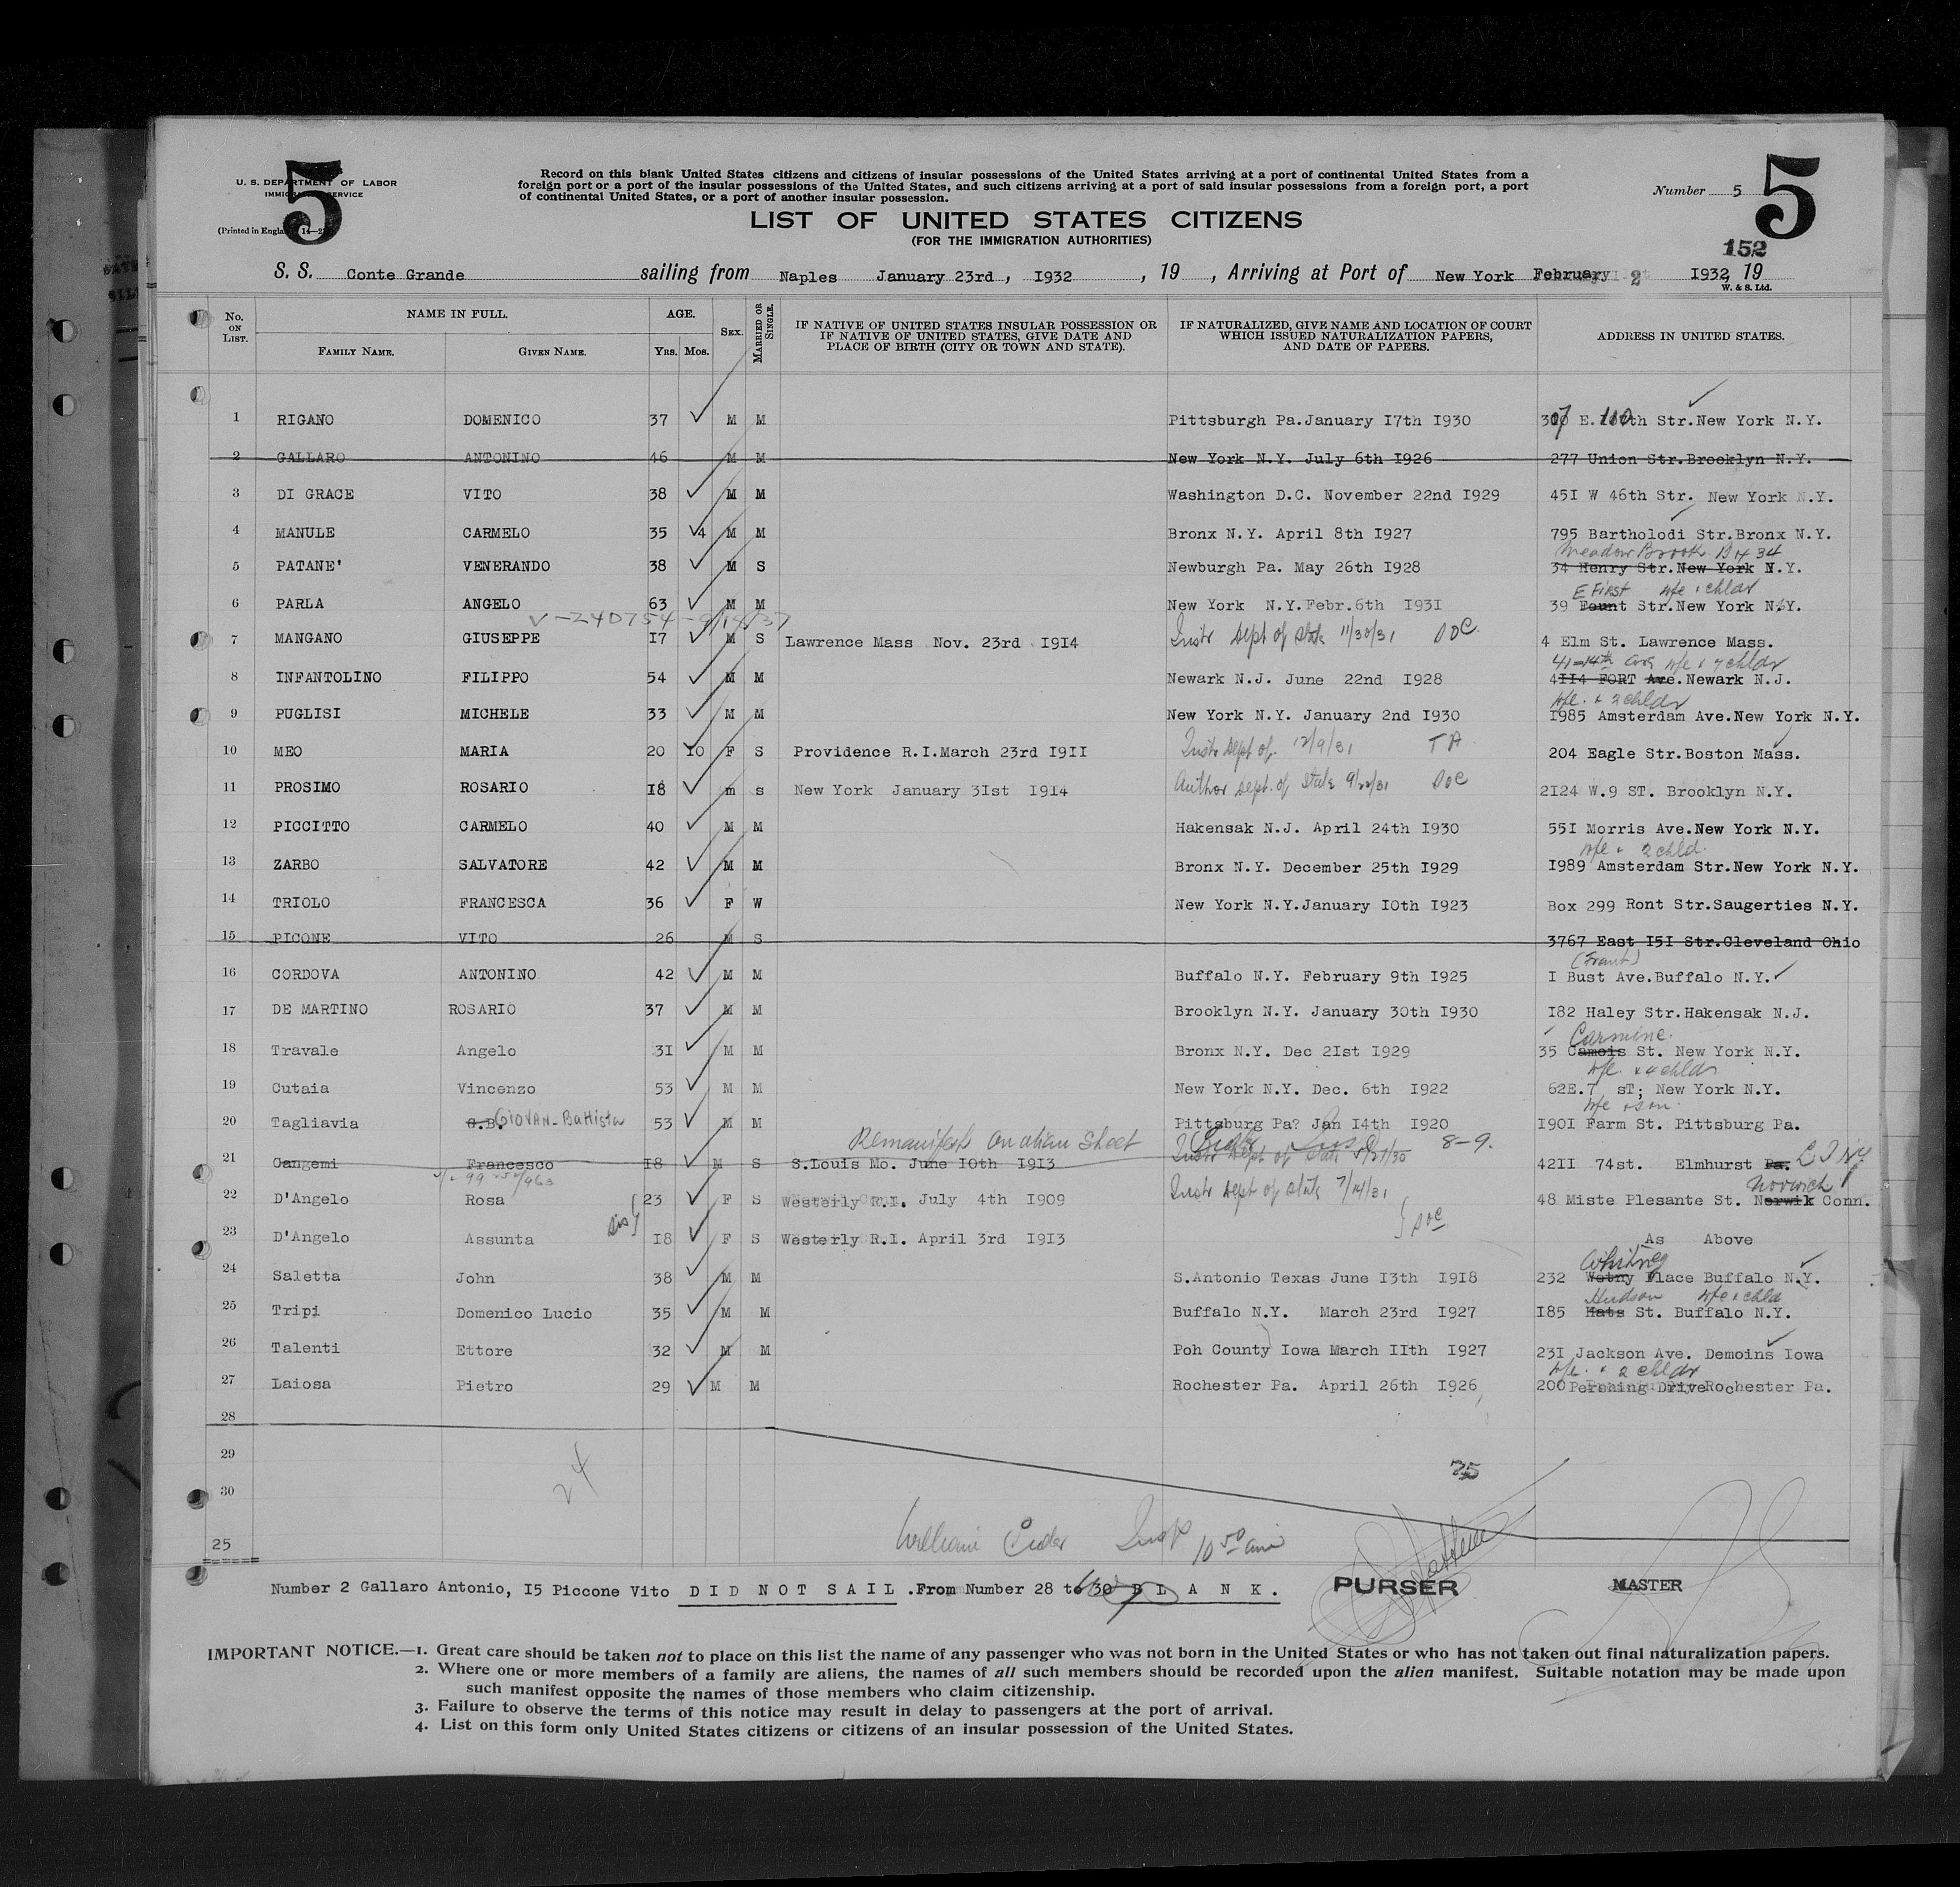 5
5
U. S. DEPARTMENT OF LABOR
IMMIGRATION SERVICE
(Printed in England 14—2
Record on this blank United States citizens and citizens of insular possessions of the United States arriving at a port of continental United States from a
foreign port or a port of the insular possessions of the United States, and such citizens arriving at a port of said insular possessions from a foreign port, a port
of continental United States, or a port of another insular possession.
Number 5
LIST OF UNITED STATES CITIZENS
(FOR THE IMMIGRATION AUTHORITIES)
152
S. S. Conte Grande sailing from Naples January 23rd, I932, 19 , Arriving at Port of New York February 2 I932, 19
W. & S. Ltd.
No. ON LIST. NAME IN FULL. AGE. SEX. MARRIED OR SINGLE. IF NATIVE OF UNITED STATES INSULAR POSSESSION OR IF NATIVE OF UNITED STATES, GIVE DATE AND PLACE OF BIRTH (CITY OR TOWN AND STATE). IF NATURALIZED, GIVE NAME AND LOCATION OF COURT WHICH ISSUED NATURALIZATION PAPERS, AND DATE OF PAPERS. ADDRESS IN UNITED STATES.
FAMILY NAME. GIVEN NAME. YRS. MOS.
1 RIGANO DOMENICO 37 M M Pittsburgh Pa.January I7th I930 307 E. 110th Str.New York N.Y.
2 GALLARO ANTONINO 46 M M New York N.Y. July 6th I926 277 Union Str.Brooklyn N.Y.
3 DI GRACE VITO 38 M M Washington D.C. November 22nd I929 45I W 46th Str. New York N.Y.
4 MANULE CARMELO 35 4 M M Bronx N.Y. April 8th I927 795 Bartholodi Str.Bronx N.Y.
Meadow Brook Bx 34
5 PATANE' VENERANDO 38 M S Newburgh Pa. May 26th I928 34 Henry Str.New York N.Y.
E First wfe & chldr
6 PARLA ANGELO 63 M M New York N.Y.Febr.6th I93I 39 Fount Str.New York N.Y.
V-240754-9/14/37
7 MANGANO GIUSEPPE I7 M S Lawrence Mass Nov. 23rd I9I4 Instr Dept of State 11/30/31 DOC 4 Elm St. Lawrence Mass.
41-14th Ave wfe & 4 chldr
8 INFANTOLINO FILIPPO 54 M M Newark N.J. June 22nd I928 4II4 FORT Ave.Newark N.J.
wfe. & 2 chldr
9 PUGLISI MICHELE 33 M M New York N.Y. January 2nd I930 I985 Amsterdam Ave.New York N.Y.
10 MEO MARIA 20 IO F S Providence R.I.March 23rd I9II Instr Dept of 12/9/31 T A 204 Eagle Str.Boston Mass.
11 PROSIMO ROSARIO I8 m s New York January 3Ist I9I4 Author Dept. of State 9/22/31 DOC 2I24 W.9 ST. Brooklyn N.Y.
12 PICCITTO CARMELO 40 M M Hakensak N.J. April 24th I930 55I Morris Ave.New York N.Y.
wfe & 2 chld.
13 ZARBO SALVATORE 42 M M Bronx N.Y. December 25th I929 I989 Amsterdam Str.New York N.Y.
14 TRIOLO FRANCESCA 36 F W New York N.Y.January IOth I923 Box 299 Ront Str.Saugerties N.Y.
15 PICONE VITO 26 M S 3767 East I5I Str.Cleveland Ohio
16 CORDOVA ANTONINO 42 M M Buffalo N.Y. February 9th I925 I Bust Ave.Buffalo N.Y.
17 DE MARTINO ROSARIO 37 M M Brooklyn N.Y. January 30th I930 I82 Haley Str.Hakensak N.J.
Carmine
18 Travale Angelo 3I M M Bronx N.Y. Dec 2Ist I929 35 Camois St. New York N.Y.
wfe. & 4 chldr
19 Cutaia Vincenzo 53 M M New York N.Y. Dec. 6th I922 62E.7 sT; New York N.Y.
wfe & son
20 Tagliavia G.B. GIOVAN-Battista 53 M M Pittsburg Pa? Jan I4th I920 I90I Farm St. Pittsburg Pa.
Remanifests on alien sheet 8-9.
21 Cangemi Francesco I8 M S S.Louis Mo. June IOth I9I3 Instr Dept of State 5/27/30 42II 74st. Elmhurst Pa. L I NY
Norwich
22 D'Angelo Rosa 23 F S Westerly R.I. July 4th I909 Instr Dept of State 7/14/31 48 Miste Plesante St. Nerwik Conn.
Sis DOC
23 D'Angelo Assunta I8 F S Westerly R.I. April 3rd I9I3 As Above
Whitney
24 Saletta John 38 M M S.Antonio Texas June I3th I9I8 232 Wetny Place Buffalo N.Y.
Hudson wfe & chld
25 Tripi Domenico Lucio 35 M M Buffalo N.Y. March 23rd I927 I85 Hats St. Buffalo N.Y.
26 Talenti Ettore 32 M M Poh County Iowa March IIth I927 23I Jackson Ave. Demoins Iowa
wfe. & 2 chldr
27 Laiosa Pietro 29 M M Rochester Pa. April 26th I926 200 Pershing Drive Rochester Pa.
28
29
24 25
30
25 William Insp 10 50 am
Number 2 Gallaro Antonio, I5 Piccone Vito DID NOT SAIL .From Number 28 to 30 BLANK.
PURSER MASTER
IMPORTANT NOTICE.—1. Great care should be taken not to place on this list the name of any passenger who was not born in the United States or who has not taken out final naturalization papers.
2. Where one or more members of a family are aliens, the names of all such members should be recorded upon the alien manifest. Suitable notation may be made upon
such manifest opposite the names of those members who claim citizenship.
3. Failure to observe the terms of this notice may result in delay to passengers at the port of arrival.
4. List on this form only United States citizens or citizens of an insular possession of the United States.